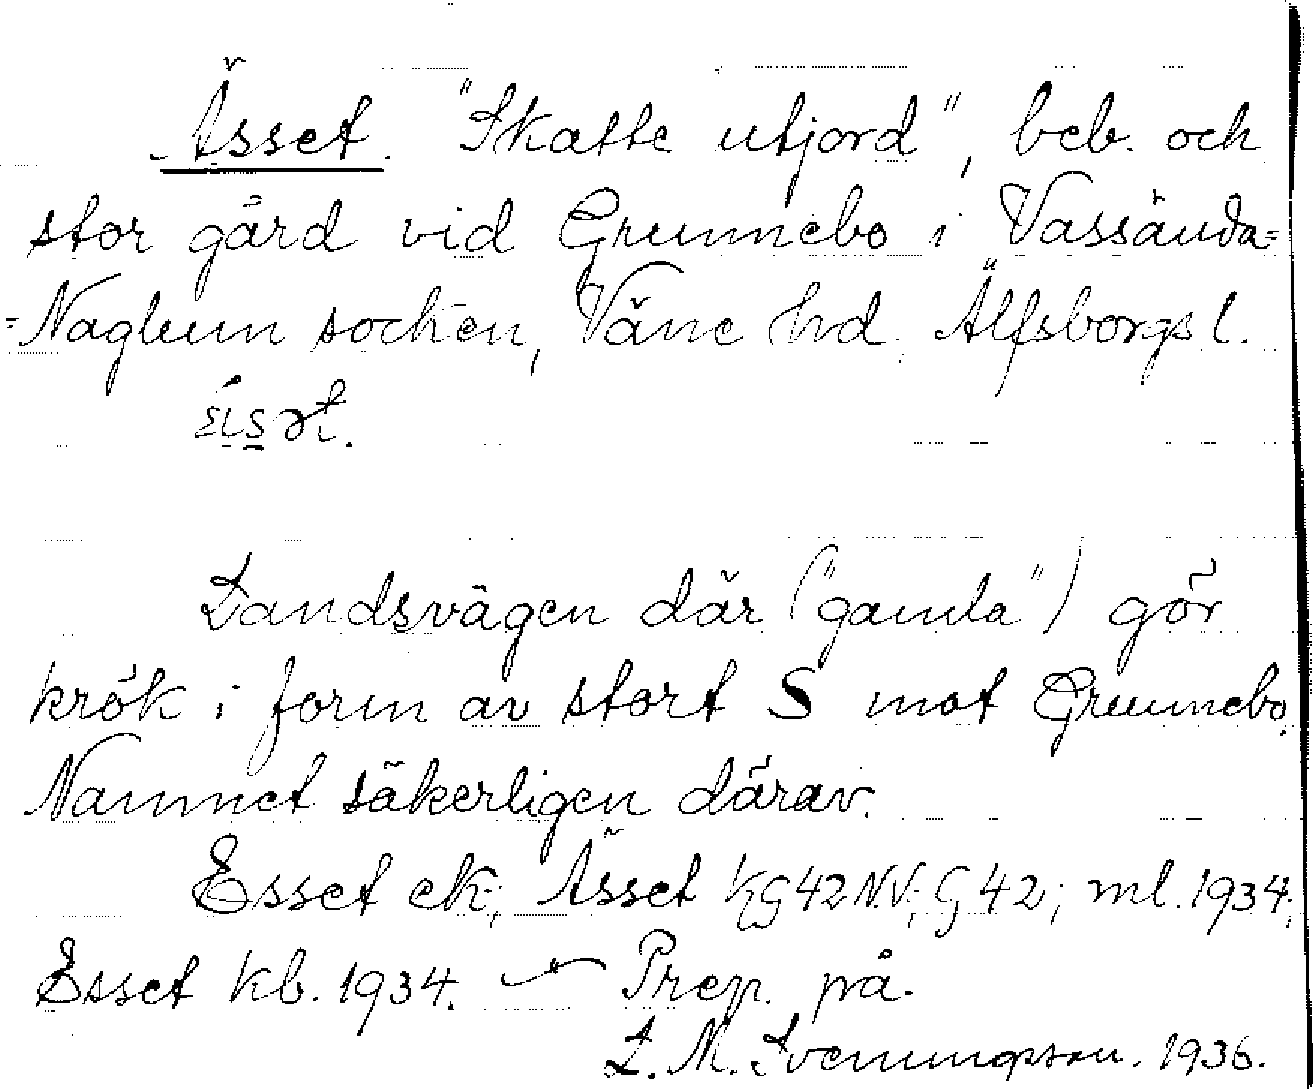 Ässet. "Skatte utjord", beb. och
stor gård vid Grunnebo i Vassända=
=Naglum socken, Väne hd. Älfsborgs l.
Landsvägen där ("gamla") gör
krök i form av stort S mot Grunnebo.
Namnet säkerligen därav.
Esset ek; Ässet KG42NV; G42; ml. 1934;
Esset kb. 1934. — Prep. på.
L. M. Svenungsson. 1936.